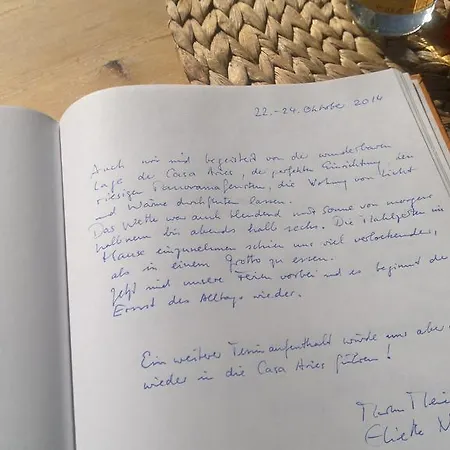 22.-24. Oktober 2014
Auch wir sind begeistert von der wunderbaren
Lage der Casa Aries, der perfekten Einrichtung, den
riesigen Panoramafenstern, die Wohnung von Licht
und Wärme durchfluten lassen.
Das Wetter war auch blendend mit Sonne von morgens
halb neun bis abends halb sechs. Die Mahlzeiten im
Hause einzunehmen schien uns viel verlockender,
als in einem Grotto zu essen.
Jetzt sind unsere Ferien vorbei und es beginnt der
Ernst des Alltags wieder.
Ein weiterer Tessinaufenthalt würde uns aber
wieder in die Casa Aries führen!